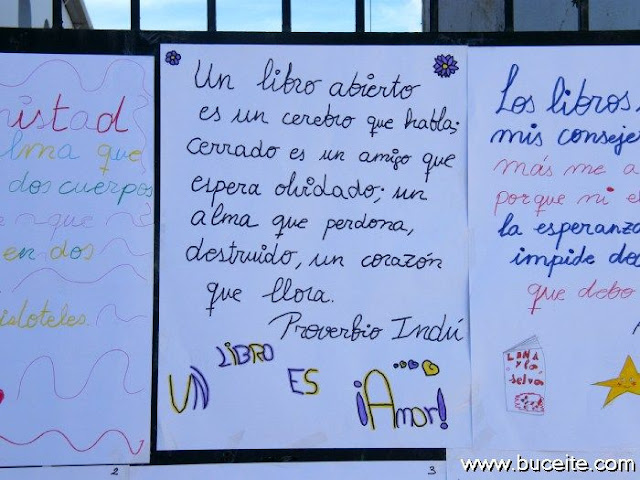 nistad
alma que
dos cuerpos
que
en dos
Aristoteles.
2
Un libro abierto
es un cerebro que habla;
cerrado es un amigo que
espera olvidado; un
alma que perdona,
destruido, un corazón
que llora.
Proverbio Indú
UN LIBRO ES ¡Amor!
3
Los libros
mis conseje
más me a
porque ni e
la esperanza
impide dec
que debo
Luna
y la
selva
www.buceite.com